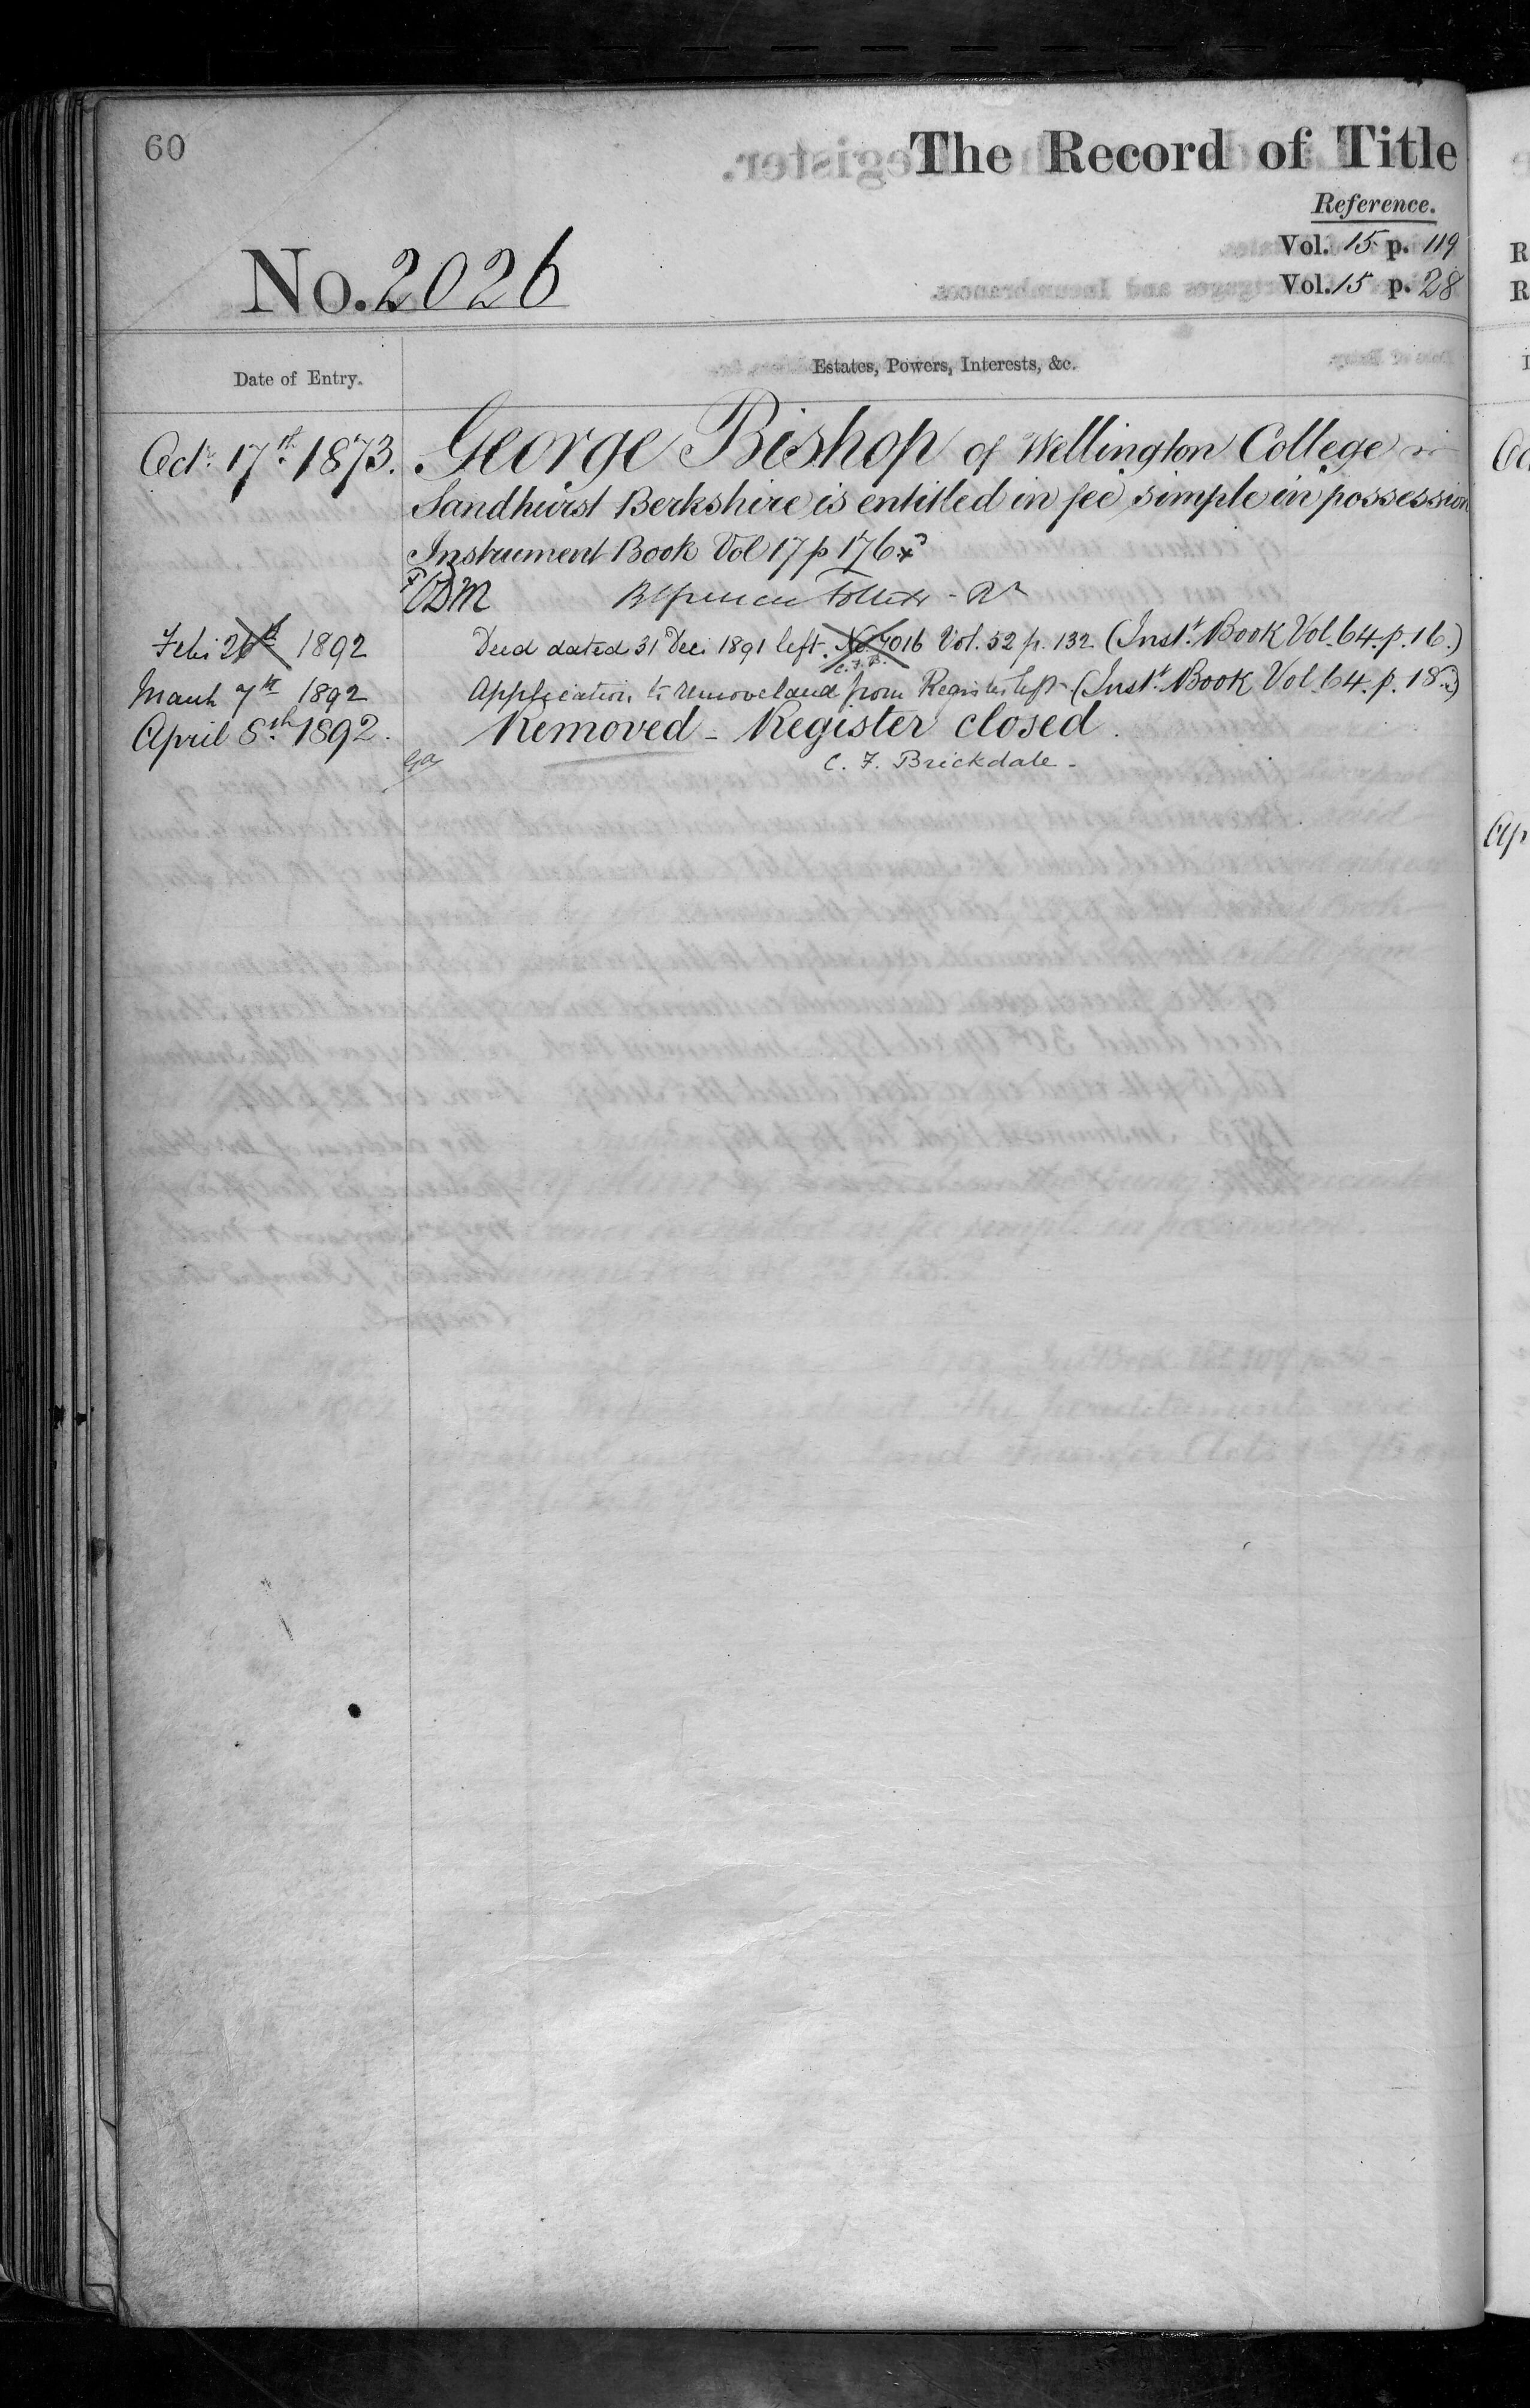 60
The Record of Title
Reference.
Vol. 15 p. 119
Vol. 15 p. 28
No. 2026
Date of Entry.
Estates, Powers, Interests, &c.
Oct. 17th 1873. George Bishop of Wellington College in
Sandhurst Berkshire is entitled in fee simple in possession
Instrument Book Vol 17 p 176
Feb. 26th 1892 Deed dated 31 Dec. 1891 left. No 4016 Vol. 52 p. 132 (Inst. Book Vol. 64. p. 16.)
C.F.B.
March 7th 1892 Application to remove land from Register left (Inst. Book Vol. 64. p. 18.)
April 8th 1892. Removed - Register closed.
C. F. Brickdale -